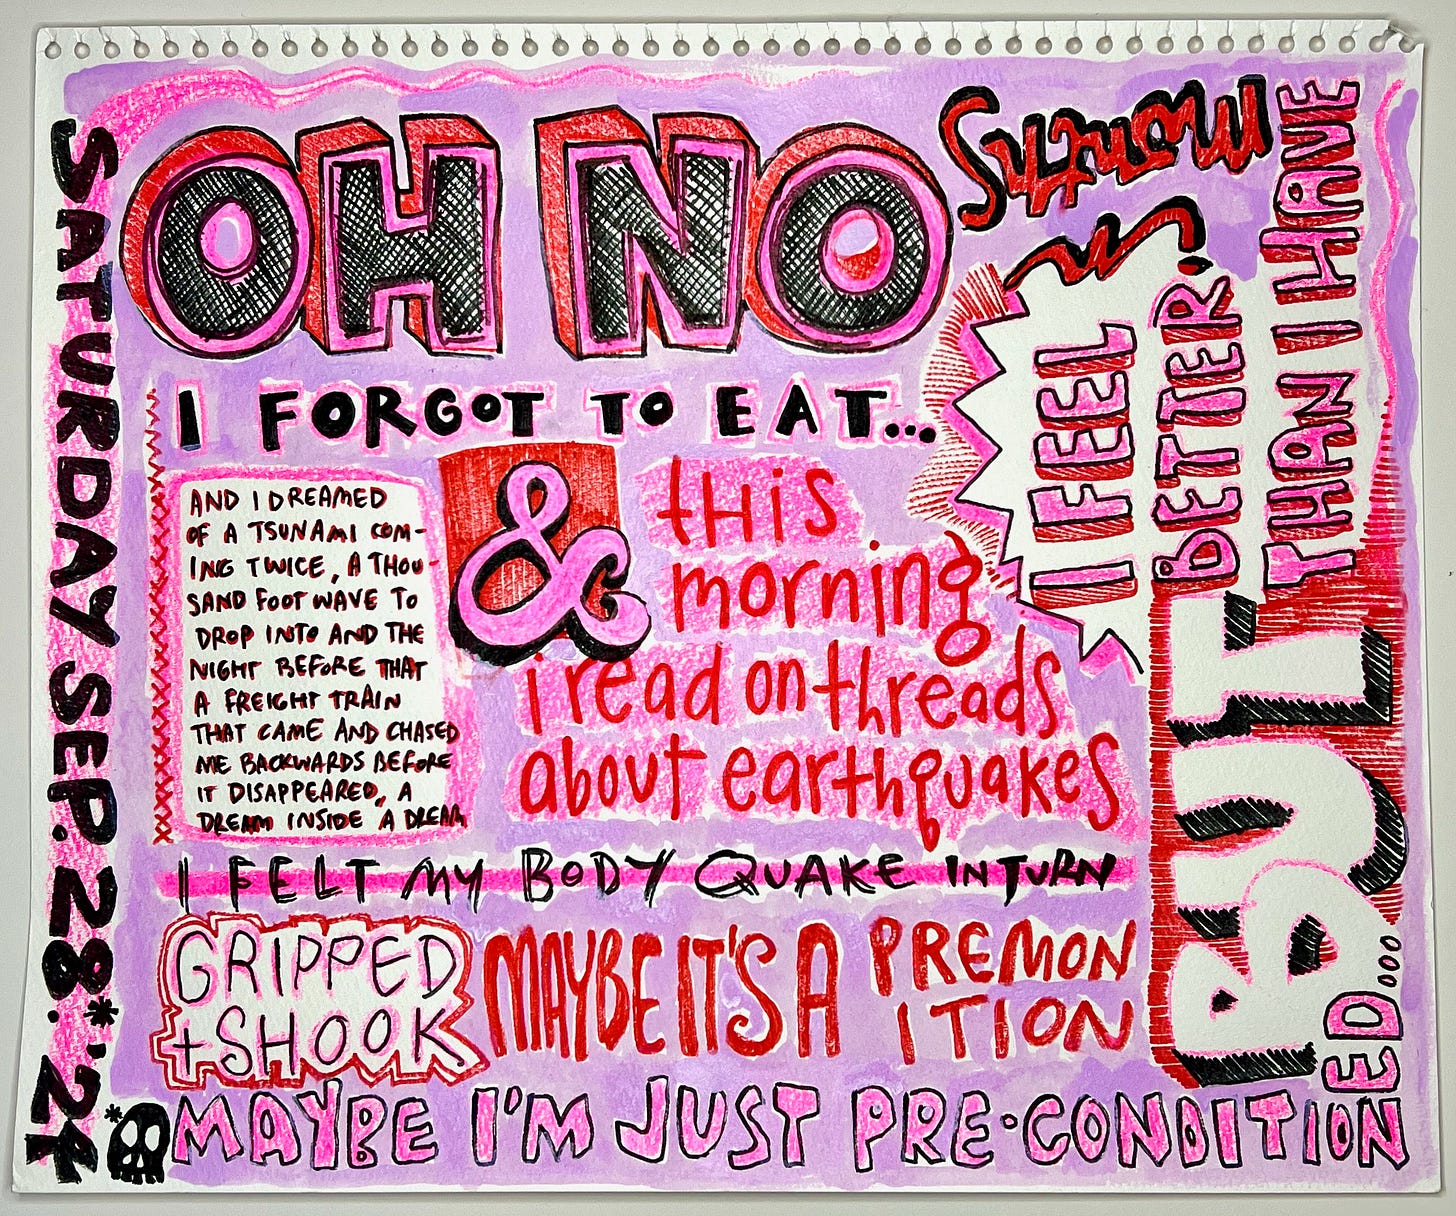 SATURDAY SEP. 28.*'24
OH NO
I FORGOT TO EAT...
AND I DREAMED
OF A TSUNAMI COM-
ING TWICE, A THOU-
SAND FOOT WAVE TO
DROP INTO AND THE
NIGHT BEFORE THAT
A FREIGHT TRAIN
THAT CAME AND CHASED
ME BACKWARDS BEFORE
IT DISAPPEARED, A
DREAM INSIDE A DREAM
&
this
morning
i read on threads
about earthquakes
I FELT MY BODY QUAKE IN TURN
GRIPPED
+ SHOOK
MAYBE IT'S A
PREMON
ITION
*
MAYBE I'M JUST PRE-CONDITION
ED...
BUT
I FEEL
BETTER,
THAN I HAVE
in
months